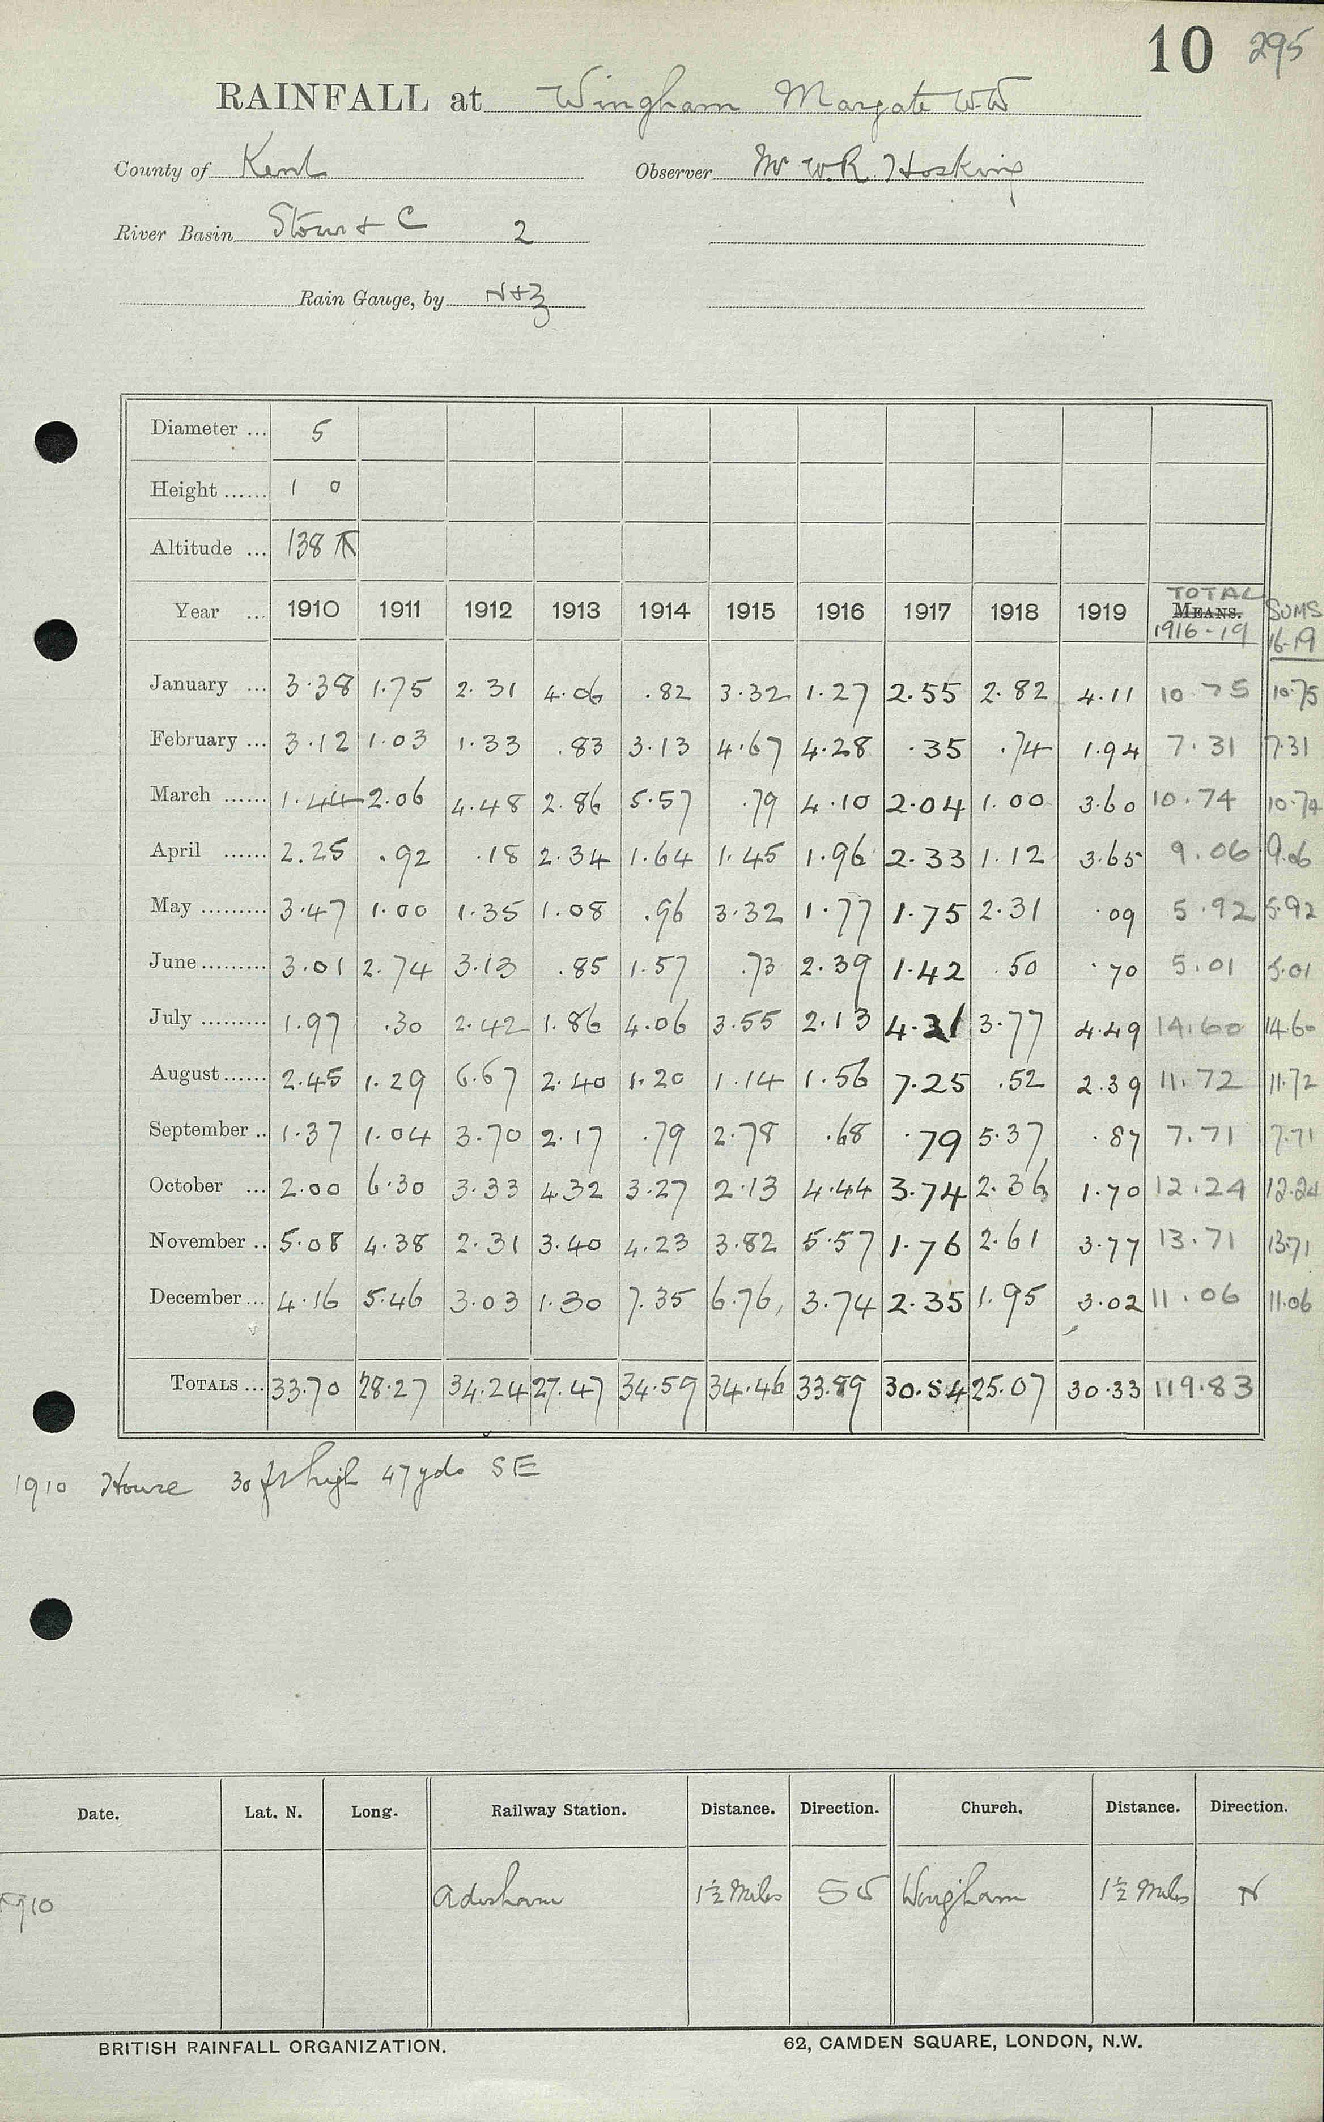 10 295
RAINFALL at Wingham Margate W.W
County of Kent Observer Mr W.R. Hosking
River Basin Stour & C 2
Rain Gauge, by N+Z
Diameter ... 5
Height ...... 1 0
Altitude ... 138
Year ... 1910 1911 1912 1913 1914 1915 1916 1917 1918 1919 TOTAL MEANS. 1916-19 SUMS 16-19
January ... 3.38 1.75 2.31 4.06 .82 3.32 1.27 2.55 2.82 4.11 10.75 10.75
February ... 3.12 1.03 1.33 .83 3.13 4.67 4.28 .35 .74 1.94 7.31 7.31
March ...... 1.44 2.06 4.48 2.86 5.57 .79 4.10 2.04 1.00 3.60 10.74 10.74
April ...... 2.25 .92 .18 2.34 1.64 1.45 1.96 2.33 1.12 3.65 9.06 9.06
May ......... 3.47 1.00 1.35 1.08 .96 3.32 1.77 1.75 2.31 .09 5.92 5.92
June ......... 3.01 2.74 3.13 .85 1.57 .73 2.39 1.42 .50 .70 5.01 5.01
July ......... 1.97 .30 2.42 1.86 4.06 3.55 2.13 4.21 3.77 4.49 14.60 14.60
August ...... 2.45 1.29 6.67 2.40 1.20 1.14 1.56 7.25 .52 2.39 11.72 11.72
September .. 1.37 1.04 3.70 2.17 .79 2.78 .68 .79 5.37 .87 7.71 7.71
October ... 2.00 6.30 3.33 4.32 3.27 2.13 4.44 3.74 2.36 1.70 12.24 12.24
November .. 5.08 4.38 2.31 3.40 4.23 3.82 5.57 1.76 2.61 3.77 13.71 13.71
December ... 4.16 5.46 3.03 1.30 7.35 6.76 3.74 2.35 1.95 3.02 11.06 11.06
TOTALS ... 33.70 28.27 34.24 27.47 34.59 34.46 33.89 30.54 25.07 30.33 119.83
1910 House 30 ft high 47 yds SE
Date. Lat. N. Long. Railway Station. Distance. Direction. Church. Distance. Direction.
1910 Adisham 1½ Miles SW Wingham 1½ Miles N
BRITISH RAINFALL ORGANIZATION. 62, CAMDEN SQUARE, LONDON, N.W.